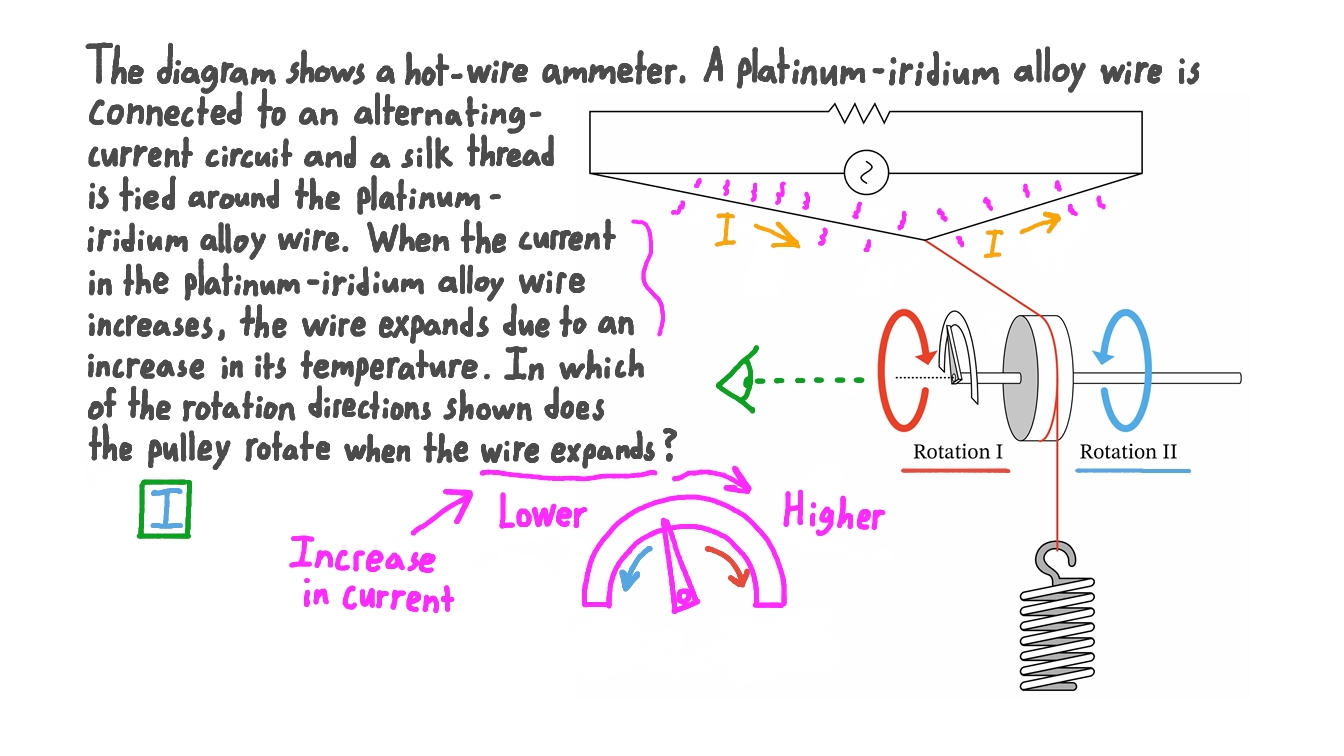 The diagram shows a hot-wire ammeter. A platinum-iridium alloy wire is
connected to an alternating-
current circuit and a silk thread
is tied around the platinum-
iridium alloy wire. When the current
in the platinum-iridium alloy wire
increases, the wire expands due to an
increase in its temperature. In which
of the rotation directions shown does
the pulley rotate when the wire expands?
I
I
I
Rotation I
Rotation II
Lower
Higher
Increase
in current